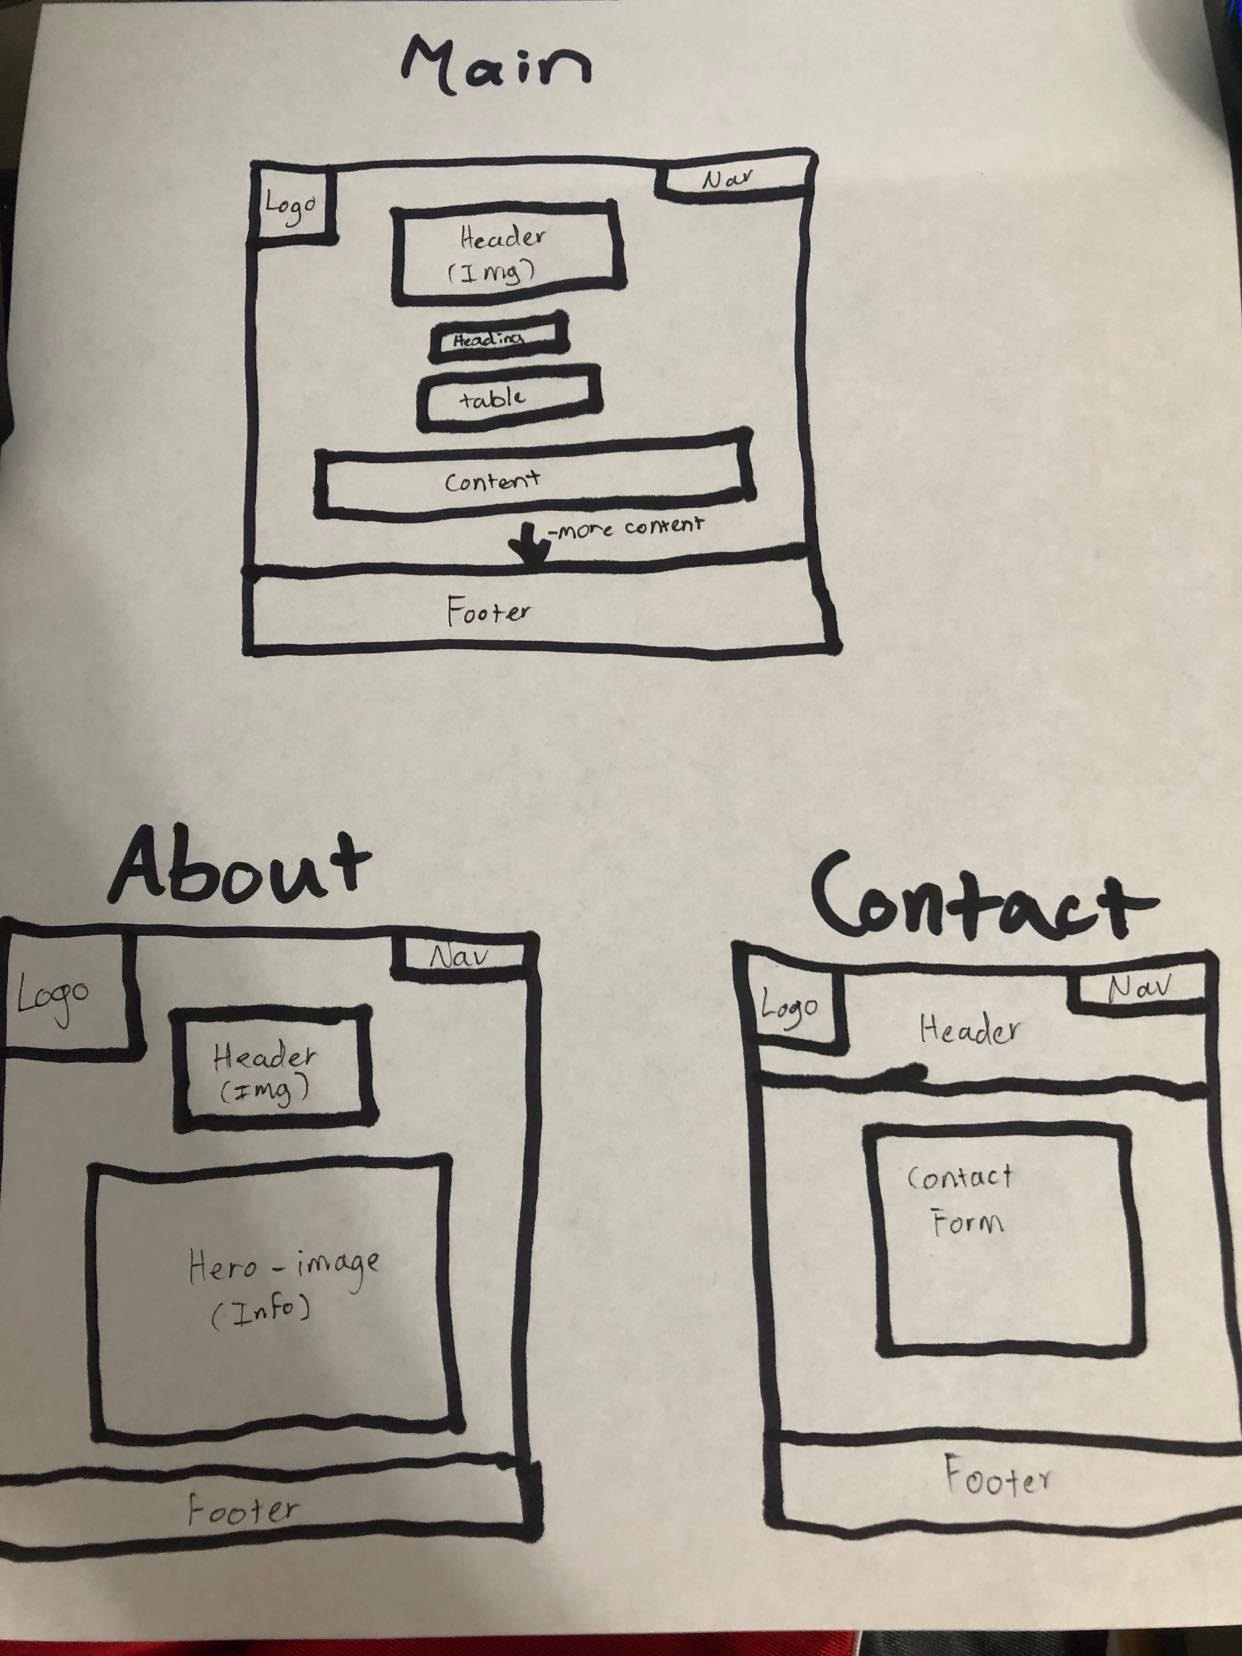 Main
Logo
Nav
Header
(Img)
Heading
table
Content
-more content
Footer
About
Logo
Nav
Header
(Img)
Hero-image
(Info)
Footer
Contact
Logo
Nav
Header
Contact
Form
Footer